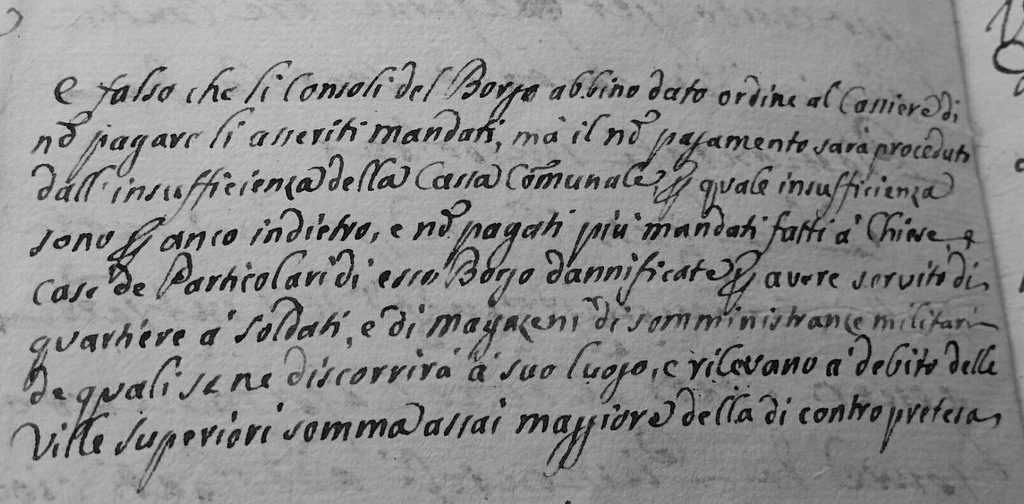 e falso che li Consoli del Borgo abbino dato ordine al Cassiere di
nõ pagare li asseriti mandati, mà il nõ pagamento sarà proceduto
dall'insufficienza della Cassa Cõmunale, ꝑ quale insufficienza
sono ꝑ anco indietro, e nõ pagati più mandati fatti à Chiese, e
case de Particolari di esso Borgo dannificate ꝑ avere servito di
quartiere à soldati, e di magazeni di somministranze militari
de quali se ne discorrirà à suo luogo, e rilevano à debito delle
Ville superiori somma assai maggiore della di contro pretesa